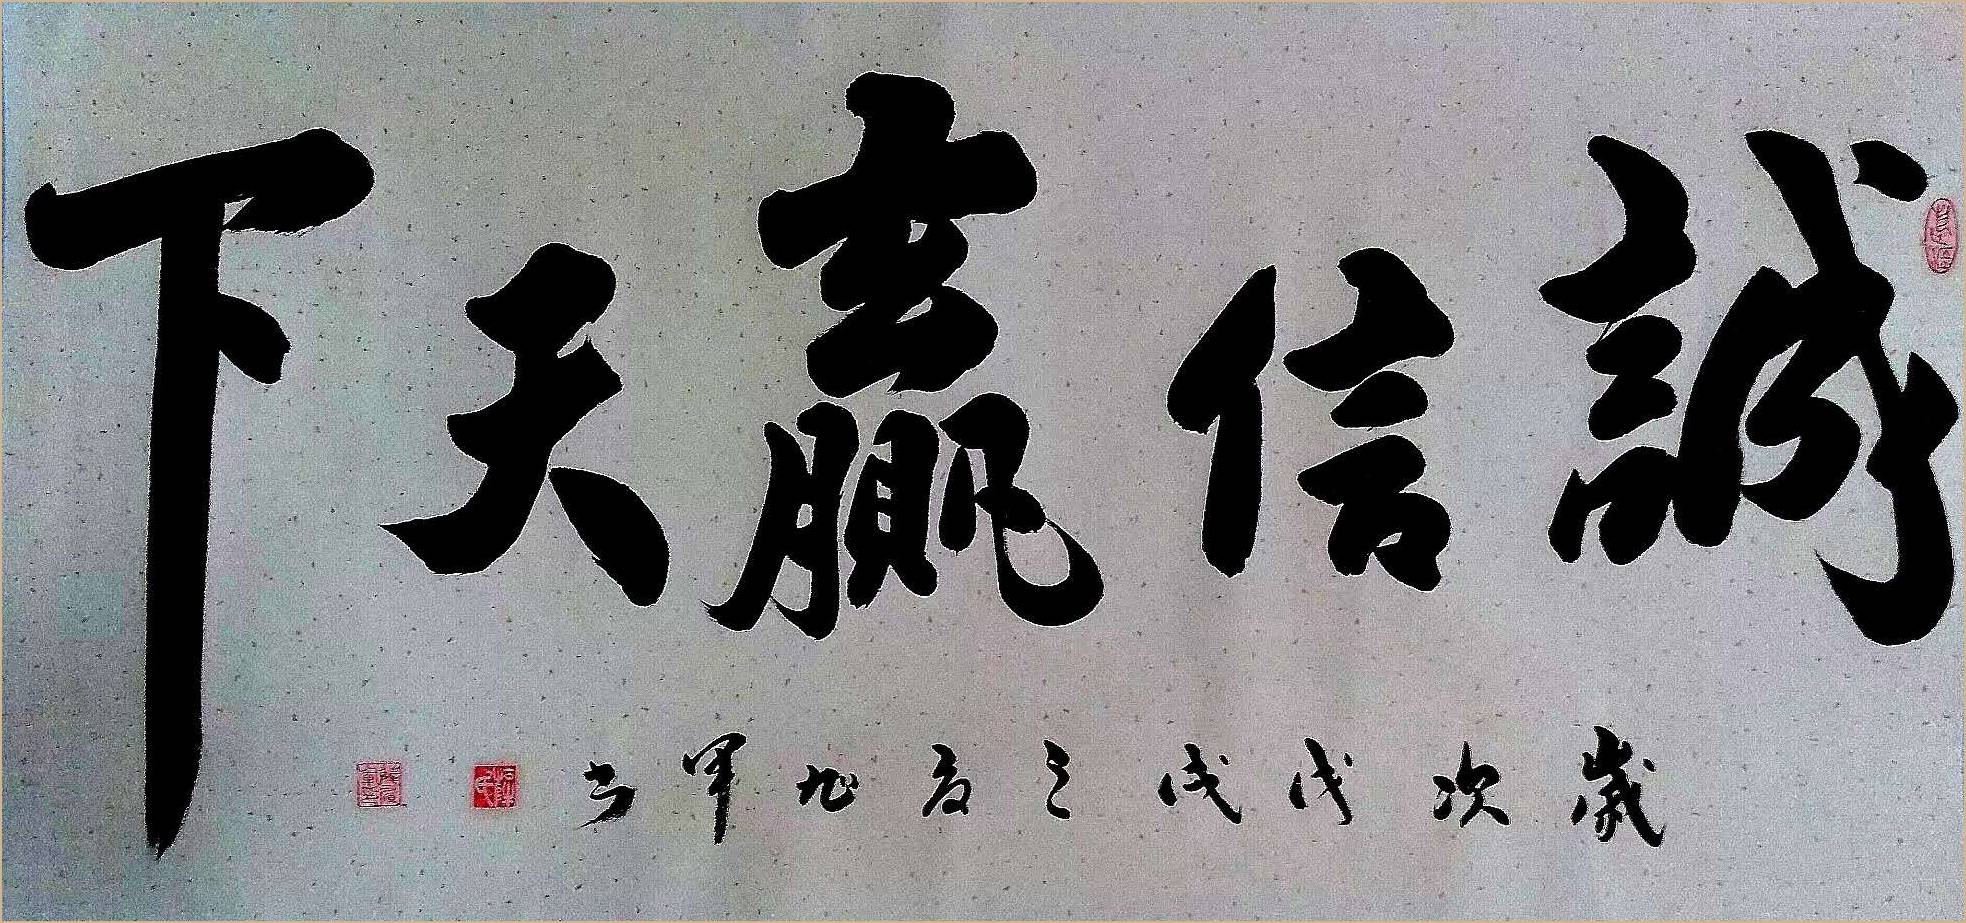 誠信贏天下
歲次戊戌之夏旭軍书